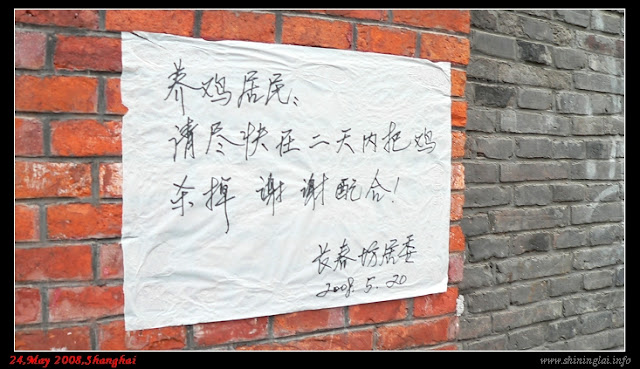 养鸡居民：
请尽快在二天内把鸡
杀掉 谢谢配合！
长春坊居委
2008.5.20
24,May 2008,Shanghai
www.shininglai.info